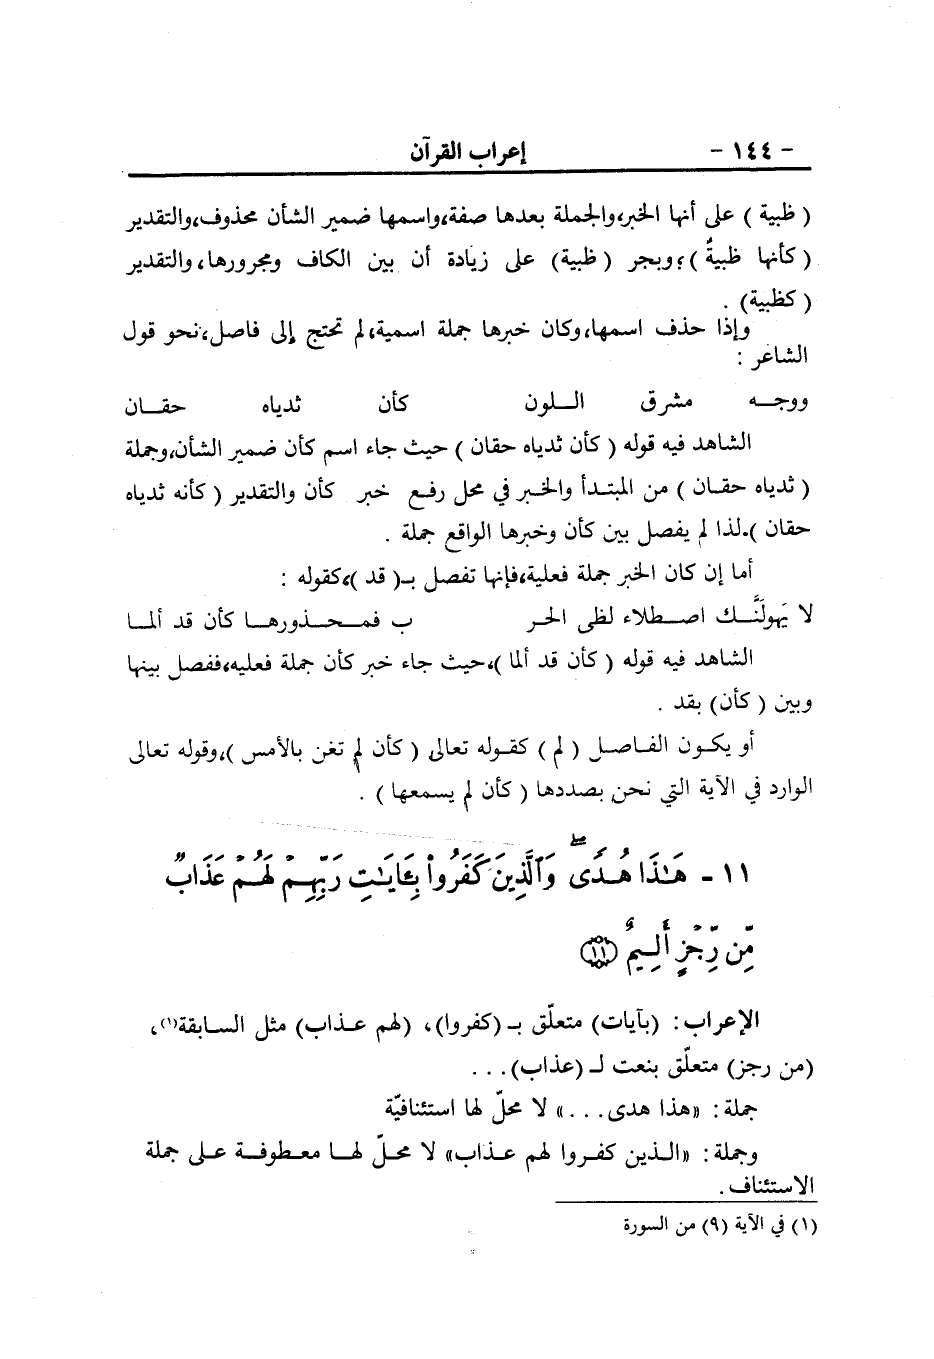 - ١٤٤ -
إعراب القرآن
( ظبية ) على أنها الخبر،والجملة بعدها صفة،واسمها ضمير الشأن محذوف،والتقدير
( كأنها ظبيةٌ )؛وبجر ( ظبية) على زيادة أن بين الكاف ومجرورها،والتقدير
( كظبية) .
وإذا حذف اسمها،وكان خبرها جملة اسمية،لم تحتج إلى فاصل،نحو قول
الشاعر :
ووجـــه مشرق اللـــون كأن ثدياه حقـــان
الشاهد فيه قوله ( كأن ثدياه حقان ) حيث جاء اسم كأن ضمير الشأن،وجملة
( ثدياه حقـان ) من المبتدأ والخبر في محل رفع خبر كأن والتقدير ( كأنه ثدياه
حقان ).لذا لم يفصل بين كأن وخبرها الواقع جملة .
أما إن كان الخبر جملة فعلية،فإنها تفصل بـ( قد )،كقوله :
لا يَهولَنَّـــك اصطـــلاء لظى الحر ب فمـــحـــذورهـــا كأن قد ألمـــا
الشاهد فيه قوله ( كأن قد ألما )،حيث جاء خبر كأن جملة فعليه،ففصل بينها
وبين ( كأن) بقد .
أو يكـون الفـاصـل ( لم ) كقـوله تعالى ( كأن لم تغن بالأمس )،وقوله تعالى
الوارد في الآية التي نحن بصددها ( كأن لم يسمعها ) .
١١ - هَـٰذَا هُدًى ۖ وَٱلَّذِينَ كَفَرُوا۟ بِـَٔايَـٰتِ رَبِّهِمْ لَهُمْ عَذَابٌ
مِّن رِّجْزٍ أَلِيمٌ ﴿١١﴾
الإعراب: (بآيات) متعلّق بـ (كفروا)، (لهم عـذاب) مثل السـابقة(١)،
(من رجز) متعلّق بنعت لـ (عذاب)...
جملة: «هذا هدى...» لا محلّ لها استئنافيّة
وجملة: «الـذين كفـروا لهم عـذاب» لا محـلّ لهـا معـطوفـة عـلى جملة
الاستئناف.
(١) في الآية (٩) من السورة